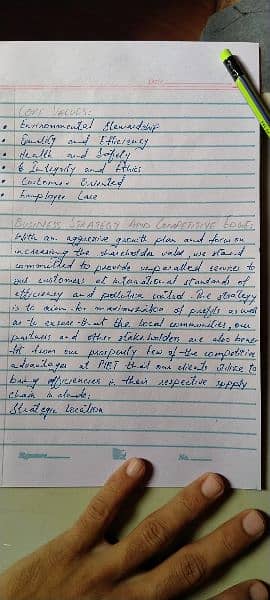 Date:
CORE VALUES:
• Environmental Stewardship
• Quality and Efficiency
• Health and Safety
• Integrity and Ethics
• Customer Oriented
• Employee Care
BUSINESS STRATEGY AND COMPETITIVE EDGE:
With an aggressive growth plan and focus on
increasing the shareholder value, we stand
committed to provide unparalled services to
our customers at international standards of
efficiency and pollution control. The strategy
is to aim for maximization of profits as well
as to ensure that the local communities, our
partners and other stakeholders are also bene-
fit from our prosperity few of the competitive
advantages at PIBT that our clients utilize to
bring efficiencies in their respective supply
chain include:
Strategic Location
Signature
No.